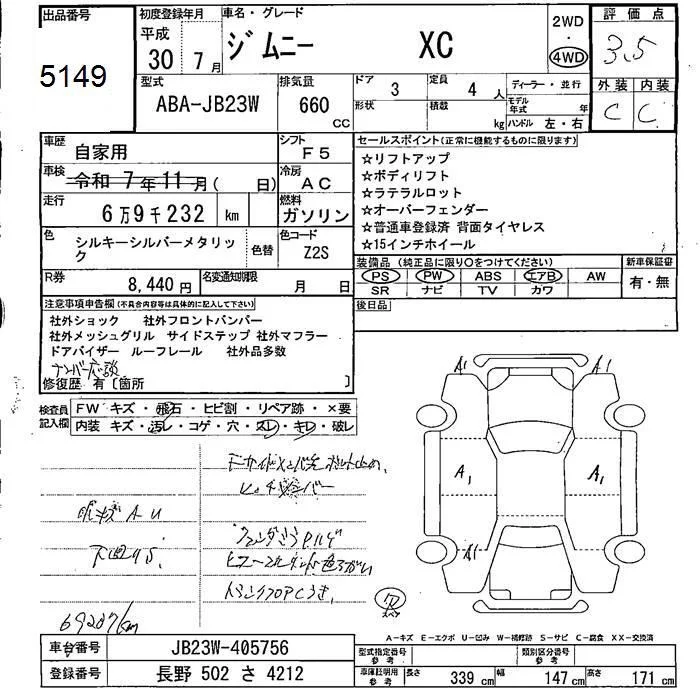 出品番号
5149
初度登録年月
平成
30年7月
車名・グレード
ジムニー XC
2WD
・
4WD
評価点
3.5
外装 内装
C C
型式
ABA-JB23W
排気量
660
CC
ドア
3
定員
4人
形状
積載
kg
ディーラー・並行
モデル年式 年
ハンドル 左・右
車歴
自家用
シフト
F5
車検
令和7年11月( 日)
冷房
AC
走行
6万9千232 km
燃料
ガソリン
色
シルキーシルバーメタリック
色替
色コード
Z2S
R券
8,440円
名変通知期限
月 日
セールスポイント(正常に機能するものに限ります)
☆リフトアップ
☆ボディリフト
☆ラテラルロット
☆オーバーフェンダー
☆普通車登録済 背面タイヤレス
☆15インチホイール
装備品(純正品に限り○をつけてください)
PS PW ABS エアB AW
SR ナビ TV カワ
新車保証書
有・無
後日品
注意事項申告欄(不具合内容等は具体的に記入して下さい)
社外ショック 社外フロントバンパー
社外メッシュグリル サイドステップ 社外マフラー
ドアバイザー ルーフレール 社外品多数
修復歴 有〔箇所 〕
検査員
記入欄
FW キズ・飛石・ヒビ割・リペア跡・×要
内装 キズ・汚レ・コゲ・穴・スレ・キレ・破レ
69207km
A1 A1
A1 A1
A1
A-キズ E-エクボ U-凹み W-補修跡 S-サビ C-腐食 XX-交換済
車台番号
JB23W-405756
登録番号
長野 502 さ 4212
型式指定番号
参考
類別区分番号
参考
車庫証明用
参考
長さ 339 cm 幅 147 cm 高さ 171 cm